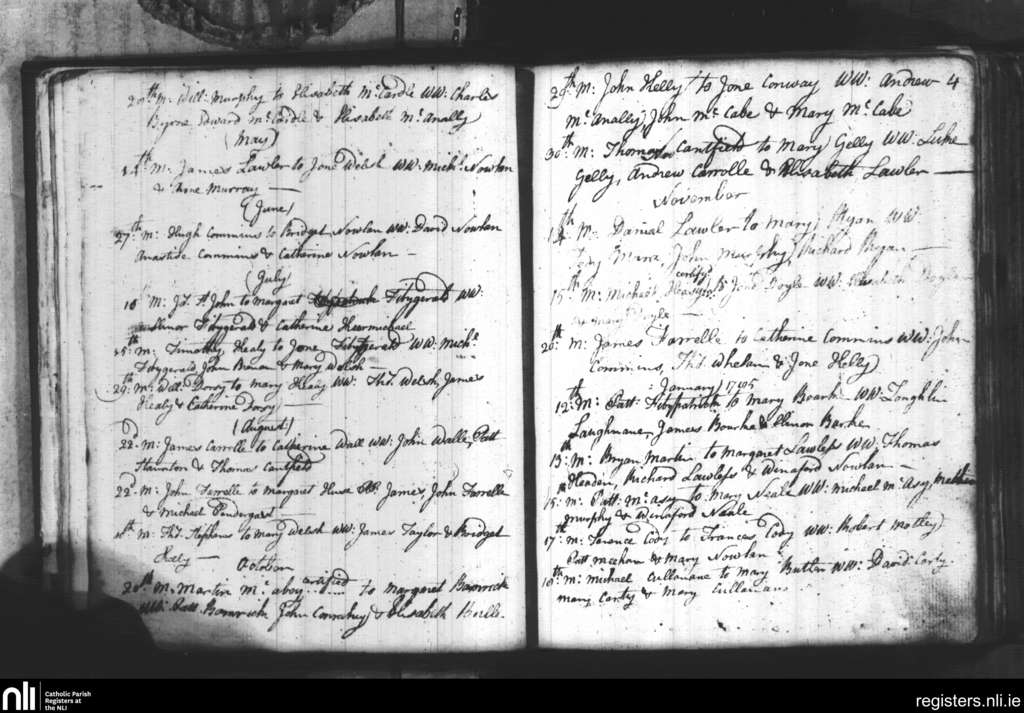 20th M: Will: Murphy to Elisabeth McCardle WW: Charles
Byrne Edward McCardle & Elisabeth McAnally
(May)
14th M: James Lawler to Jone Welsh WW: Michl: Nowlan
& Anne Murray
(June)
27th M: Hugh Commins to Bridget Nowlan WW: David Nowlan
Anastise Commins & Catherine Nowlan
(July)
10 M: Jo: St John to Margaret Fitzgerald WW:
Ellinor Fitzgerald & Catherine Heermichael
15th M: Timothy Healy to Jone Fitzgerald WW: Michl
Fitzgerald John Brenan & Mary Welsh
29th M: Will: Dorsy to Mary Healy WW: Thos. Welsh, James
Healy & Catherine Dorsy
(August)
22d M: James Carrolle to Catherine Wall WW: John Walle, Patt
Staunton & Thomas Cantfield
22d M: John Farrelle to Margaret James, John Farrelle
& Michael Pendergast
M: Thos. Stephens to Mary Welsh WW: James Taylor & Bridget
Kelly
October
20th M. Martin Mc evoy certified to Margaret Bamrick
Patt Bamrick John & Elisabeth
29th M: John Kelly to Jone Conway WW: Andrew 4
McAnally, John McCabe & Mary McCabe
30th M: Thomas Cantfield to Mary Gelly WW: Luke
Gelly, Andrew Carrolle & Elisabeth Lawler
November
14th M: Danial Lawler to Mary Ryan WW:
John Murphy, Richard Ryan
15th M: Michael certify'd to Jone Doyle WW: Elisabeth
& Mary Doyle
20th M: James Farrelle to Catherine Commins WW: John
Commins, Thos. Whelan & Jone Kelly
January 1795
12th M: Patt: Fitzpatrick to Mary Boark WW: Loughlin
Laughnane, James Bourke & Elinor Barke
13th M: Bryan Martin to Margaret Lawless WW: Thomas
Headen, Richard Lawless & Winaford Nowlan
15th M: Patt: McAsy to Mary Neale WW: Michael McAsy, Mathew
Murphy & Winaford Neale
17th M: Terence Cody to Frances Cody WW: Robert Motley
Patt Meehan & Mary Nowlan
18th M: Michael Cullanane to Mary Butler WW: David Carty
Mary Carty & Mary Cullanane
nli
Catholic Parish
Registers at
the NLI
registers.nli.ie